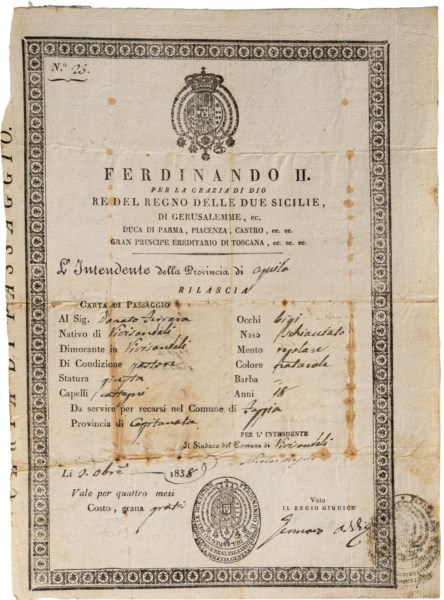 N.º 23.
FERDINANDO II.
PER LA GRAZIA DI DIO
RE DEL REGNO DELLE DUE SICILIE,
DI GERUSALEMME, ec.
DUCA DI PARMA, PIACENZA, CASTRO, ec. ec.
GRAN PRINCIPE EREDITARIO DI TOSCANA, ec. ec. ec.
L'Intendente della Provincia di Aquila
RILASCIA
CARTA DI PASSAGGIO
Al Sig. Donato
Nativo di
Dimorante in
Di Condizione pastore
Statura giusta
Capelli castagni
Occhi bigi
Naso schiacciato
Mento regolare
Colore naturale
Barba
Anni 18
Da servire per recarsi nel Comune di Foggia
Provincia di Capitanata
PER L'INTENDENTE
Il Sindaco del Comune di
Li 2. Obre 1838
Vale per quattro mesi
Costo, grana gratis
Visto
IL REGIO GIUDICE
Gennaro
DI PASSAGGIO.